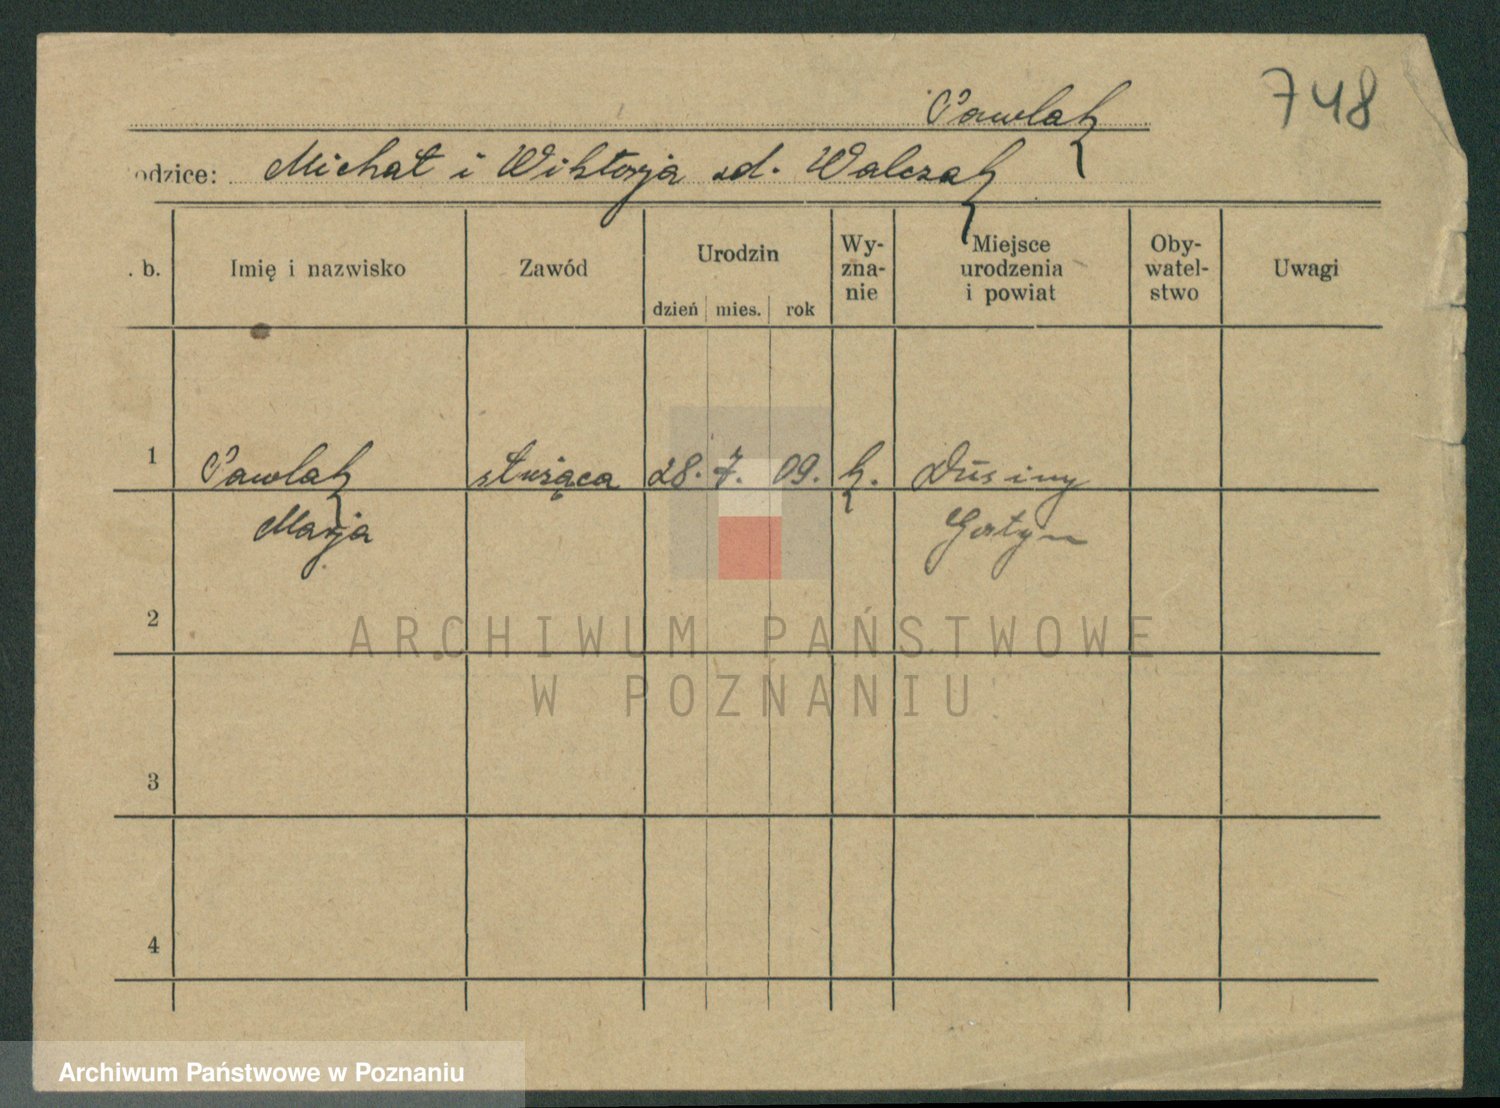 748
Pawlak
odzice: Michał i Wiktorja zd. Walczak
. b. Imię i nazwisko Zawód Urodzin dzień mies. rok Wy-zna-nie Miejsce urodzenia i powiat Oby-watel-stwo Uwagi
1 Pawlak służąca 28. 7. 09. k. Dusiny
Marja Gostyń
2
ARCHIWUM PAŃSTWOWE
W POZNANIU
3
4
Archiwum Państwowe w Poznaniu